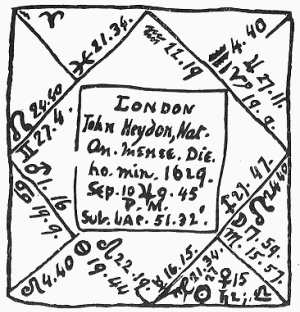 ♈
♓ 21.34.
♒ 12.19
4.40
27.11.
19.9.
24.40
♊ 27.4.
♂ 1.16
♋ 19.9.
LONDON
John Heydon, Nat.
An. mense. Die.
ho. min. 1629.
Sep. 10 ♃ 9.45'
P. M.
Sub. Lat. 51.32'.
27.47.
24.40
7.59.
15.57.
♌ 4.40
19.44
♌ 22.19
16.15.
21.34
♀ 15
☉
♎